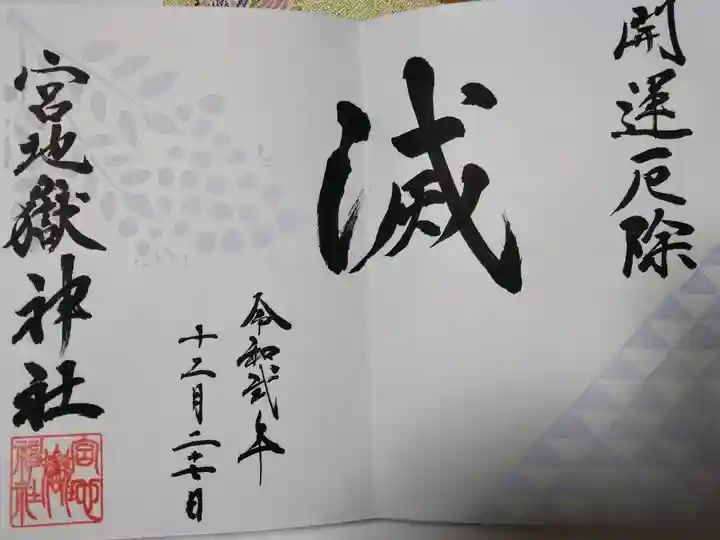 開運厄除
滅
令和弐年
十二月二十七日
宮地嶽神社
宮地
嶽
神社